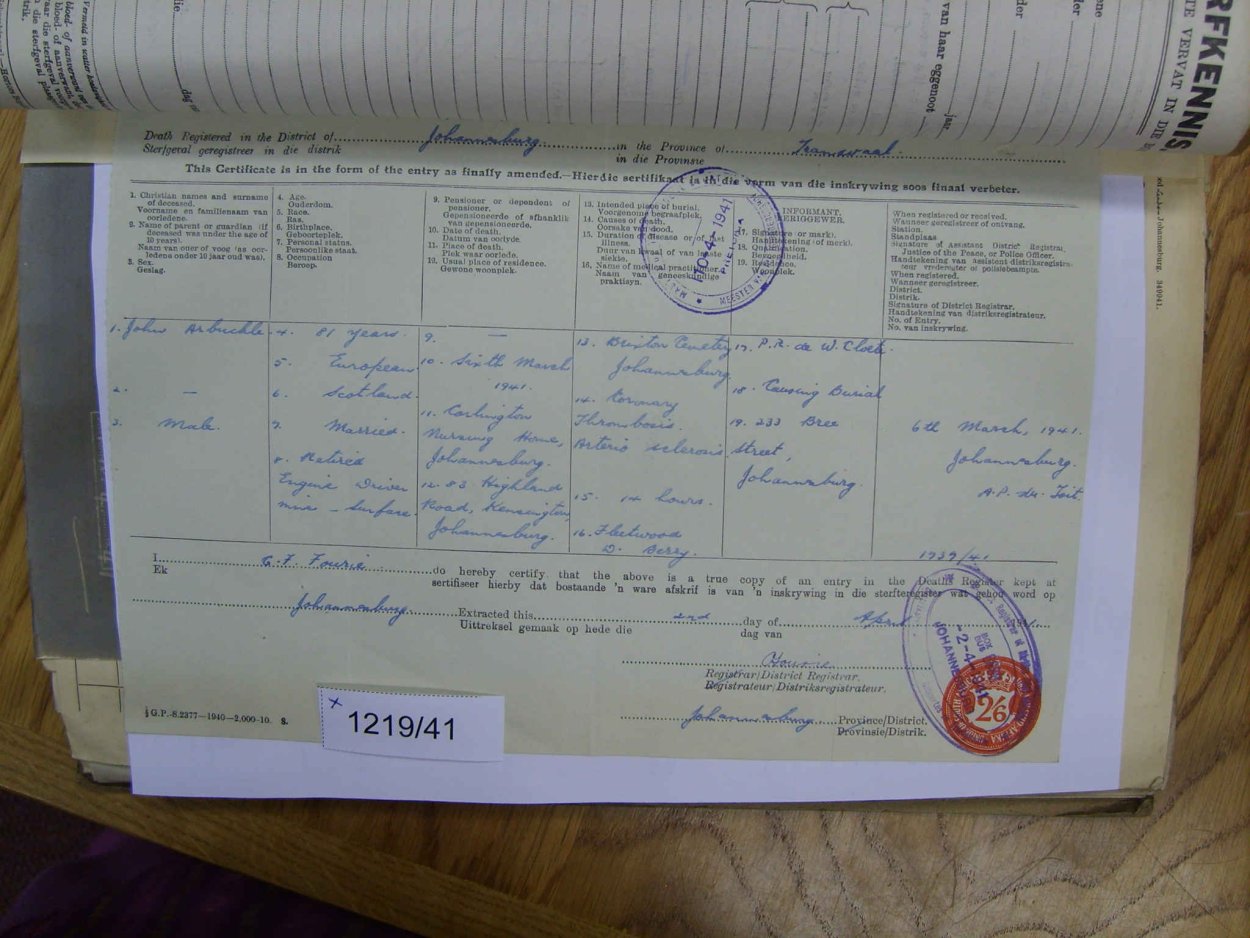 RFKENNIS,
TE VERVAT IN DIE
van haar eggenoot
jaar
dag
die
Death Registered in the District of Johannesburg in the Province of Transvaal
Sterfgeval geregistreer in die distrik in die Provinsie
This Certificate is in the form of the entry as finally amended.—Hierdie sertifikaat is in die vorm van die inskrywing soos finaal verbeter.
1. Christian names and surname of deceased.
Voorname en familienaam van oorledene.
2. Name of parent or guardian (if deceased was under the age of 10 years).
Naam van ouer of voog (as oorledene onder 10 jaar oud was).
3. Sex.
Geslag.
4. Age.
Ouderdom.
5. Race.
Ras.
6. Birthplace.
Geboorteplek.
7. Personal status.
Persoonlike staat.
8. Occupation
Beroep.
9. Pensioner or dependent of pensioner.
Gepensioneerde of afhanklik van gepensioneerde.
10. Date of death.
Datum van oorlyde.
11. Place of death.
Plek waar oorlede.
12. Usual place of residence.
Gewone woonplek.
13. Intended place of burial.
Voorgenome begraafplek.
14. Causes of death.
Oorsake van dood.
15. Duration of disease or of last illness.
Duur van kwaal of van laaste siekte.
16. Name of medical practitioner.
Naam van geneeskundige praktisyn.
INFORMANT.
17. Signature (or mark).
Handtekening (of merk).
18. Qualification.
19. Residence.
Woonplek.
When registered or received.
Wanneer geregistreer of ontvang.
Station.
Standplaas
Signature of Assistant District Registrar, Justice of the Peace, or Police Officer.
Handtekening van assistent distriksregistrateur vrederegter of polisiebeampte.
When registered.
Wanneer geregistreer.
District.
Distrik.
Signature of District Registrar.
Handtekening van distriksregistrateur.
No. of Entry.
No. van inskrywing.
10-4-1941
PRETORIA
1. John Arbuckle
2. —
3. Male.
4. 81 years.
5. European
6. Scotland.
7. Married.
8. Retired
Engine Driver
mine - surface.
9. —
10. Sixth March
1941.
11. Carlington
Nursing Home,
Johannesburg.
12. 83 Highland
Road, Kensington,
Johannesburg.
13. Brixton Cemetery
Johannesburg.
14. Coronary
Thrombosis.
Arterio sclerosis
15. 14 hours.
16. Fleetwood
D. Berry.
17. P.R. de W. Cloete.
18. Causing Burial
19. 233 Bree
Street,
Johannesburg.
6th March, 1941.
Johannesburg.
A.P. du Toit.
1939/41
I G.F. Fourie do hereby certify that the above is a true copy of an entry in the Deaths Register kept at
Ek sertifiseer hierby dat bostaande 'n ware afskrif is van 'n inskrywing in die sterfteregister wat gehou word op
Johannesburg Extracted this 2nd day of April 1941.
Uittreksel gemaak op hede die dag van
Registrar/District Registrar.
Registrateur/Distriksregistrateur.
Johannesburg Province/District.
Provinsie/Distrik.
G.P.-S.2377—1940—2,000-10. S.
x
1219/41
2/6